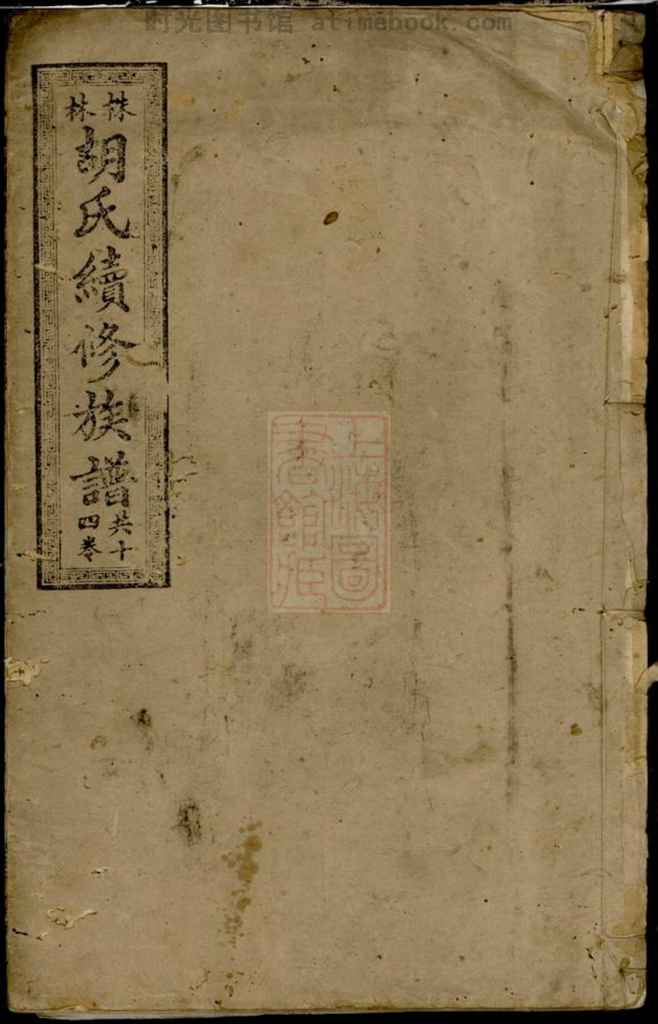 时光图书馆 atimebook.com
株林
胡氏續修族譜
共十四卷